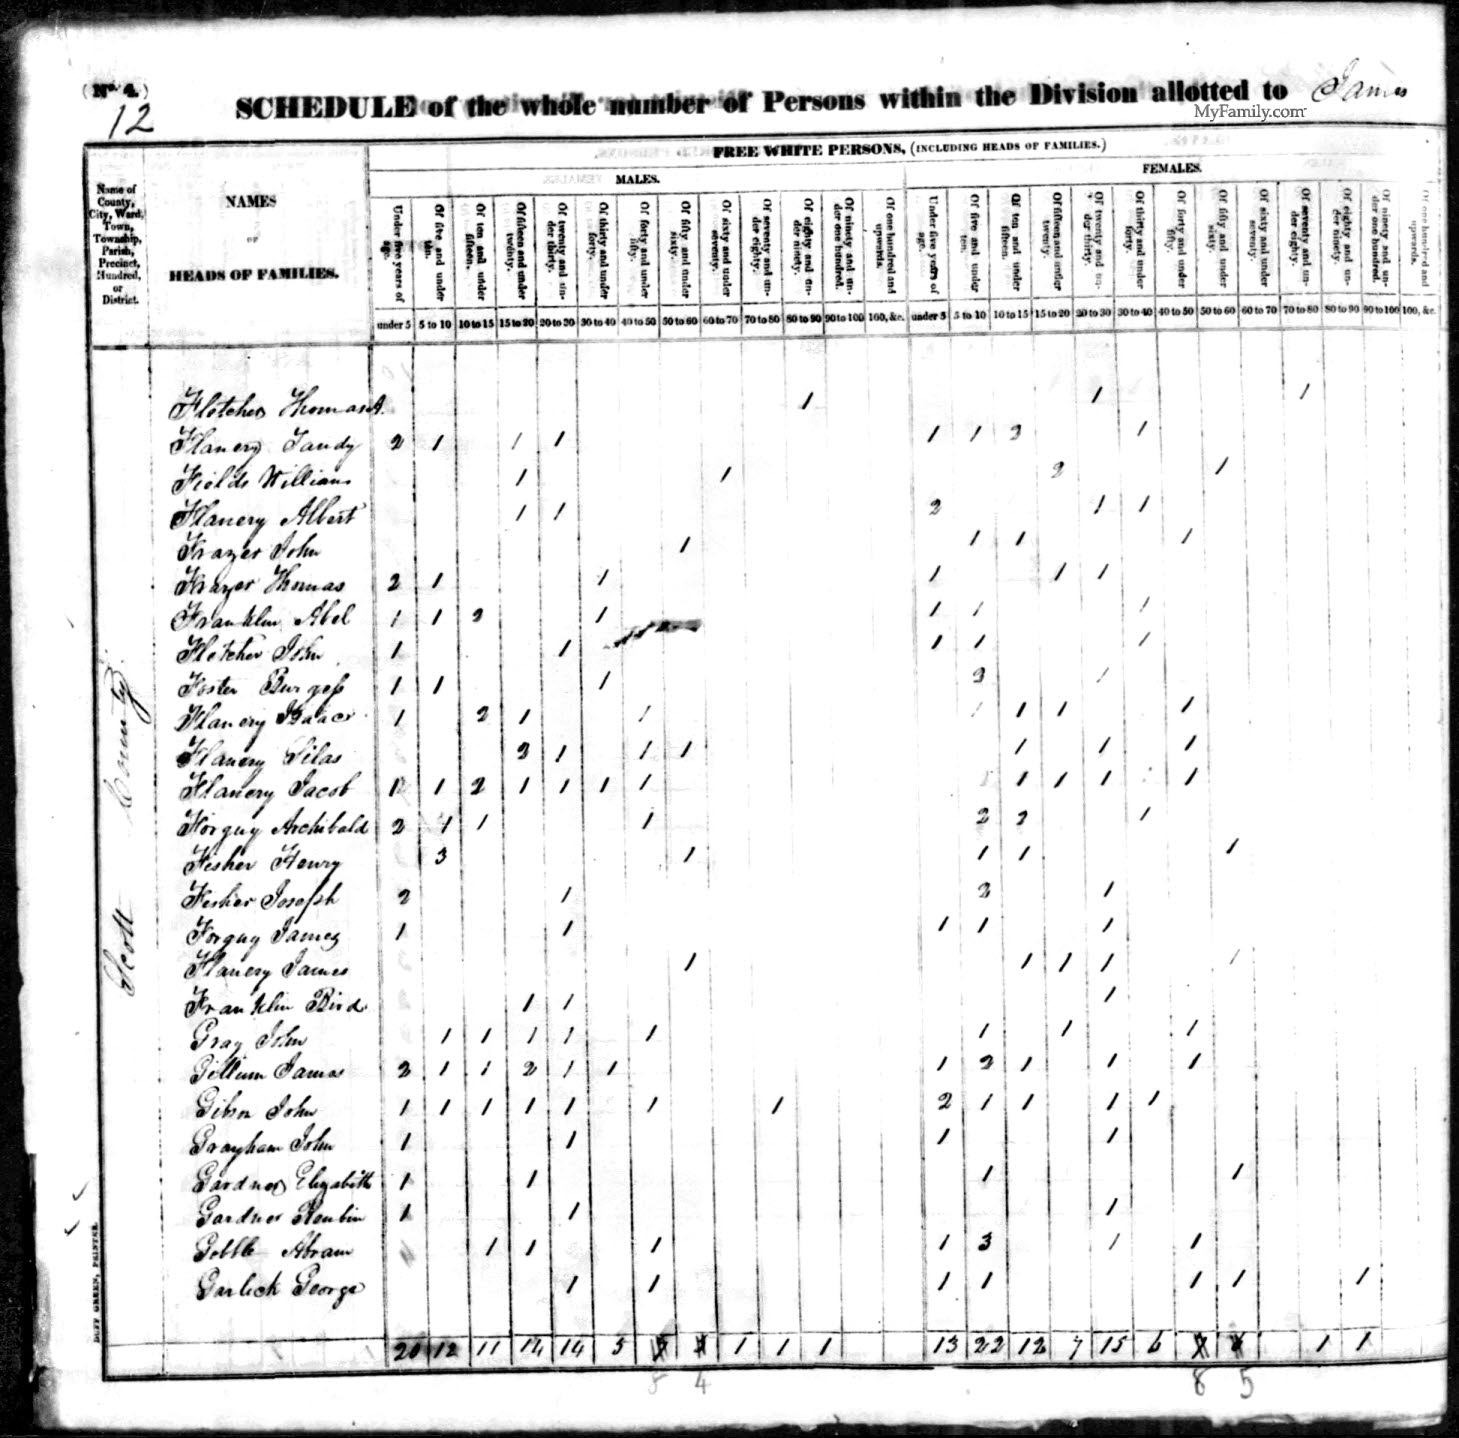 (No. 4.)
12
SCHEDULE of the whole number of Persons within the Division allotted to James
MyFamily.com
FREE WHITE PERSONS, (INCLUDING HEADS OF FAMILIES.)
MALES. FEMALES.
Name of County, City, Ward, Town, Township, Parish, Precinct, Hundred, or District.
NAMES
OF
HEADS OF FAMILIES.
Under five years of age. Of five and under ten. Of ten and under fifteen. Of fifteen and under twenty. Of twenty and under thirty. Of thirty and under forty. Of forty and under fifty. Of fifty and under sixty. Of sixty and under seventy. Of seventy and under eighty. Of eighty and under ninety. Of ninety and under one hundred. Of one hundred and upwards. Under five years of age. Of five and under ten. Of ten and under fifteen. Of fifteen and under twenty. Of twenty and under thirty. Of thirty and under forty. Of forty and under fifty. Of fifty and under sixty. Of sixty and under seventy. Of seventy and under eighty. Of eighty and under ninety. Of ninety and under one hundred. Of one hundred and upwards.
under 5 5 to 10 10 to 15 15 to 20 20 to 30 30 to 40 40 to 50 50 to 60 60 to 70 70 to 80 80 to 90 90 to 100 100, &c. under 5 5 to 10 10 to 15 15 to 20 20 to 30 30 to 40 40 to 50 50 to 60 60 to 70 70 to 80 80 to 90 90 to 100 100, &c.
Scott County
Fletcher Thomas A. 1 1 1
Flanery Tandy 2 1 1 1 1 1 3 1
Fields William 1 1 2 1
Flanery Albert 1 1 2 1 1
Frazer John 1 1 1 1
Frazer Thomas 2 1 1 1 1 1
Franklin Abel 1 1 2 1 1 1 1
Fletcher John 1 1 1 1 1
Foster Burgess 1 1 1 3 1
Flanery Isaac 1 2 1 1 1 1 1 1
Flanery Silas 2 1 1 1 1 1 1
Flanery Jacob 1 1 2 1 1 1 1 1 1 1 1
Forguy Archibald 2 1 1 1 2 2 1
Fisher Henry 3 1 1 1 1
Fisher Joseph 2 1 2 1
Forguy James 1 1 1 1 1
Flanery James 1 1 1 1 1
Franklin Bird 1 1 1
Gray John 1 1 1 1 1 1 1 1
Gillium James 2 1 1 2 1 1 1 2 1 1 1
Gibson John 1 1 1 1 1 1 1 2 1 1 1 1
Grayham John 1 1 1 1
Gardner Elizabith 1 1 1 1
Gardner Reubin 1 1 1
Gobble Abram 1 1 1 1 3 1 1
Garlick George 1 1 1 1 1 1 1
20 12 11 14 14 5 1 1 1 13 22 12 7 15 6 1 1
8 4 8 5
DUFF GREEN, PRINTER.